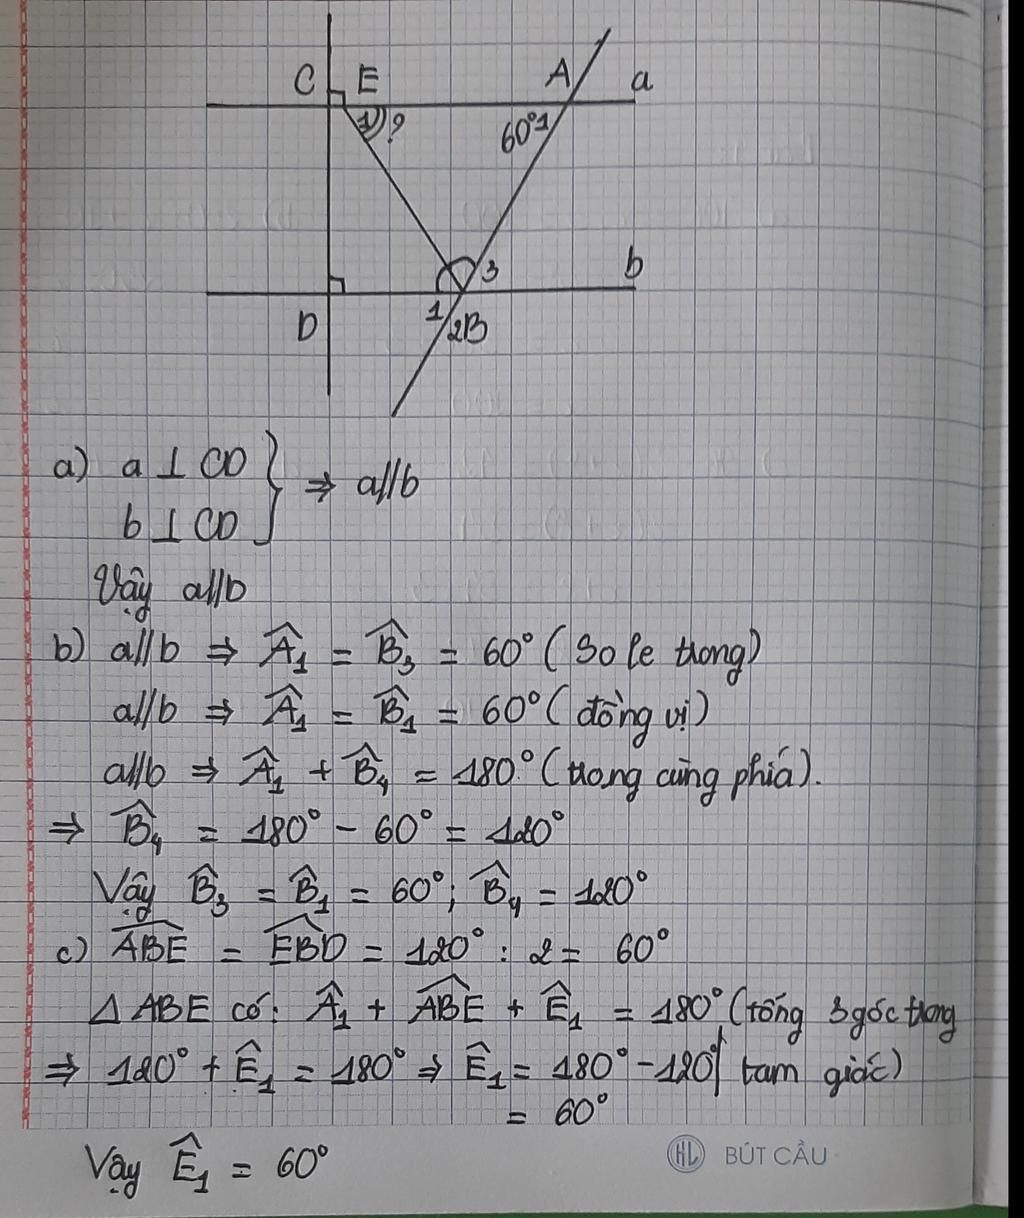 C E A a
1 ? 60° 1
3 b
D 1 2B
a) a ⊥ CD
b ⊥ CD } ⇒ a//b
Vậy a//b
b) a//b ⇒ Â₁ = B̂₃ = 60° ( So le trong)
a//b ⇒ Â₁ = B̂₁ = 60° ( đồng vị)
a//b ⇒ Â₁ + B̂₄ = 180° (trong cùng phía).
⇒ B̂₄ = 180° - 60° = 120°
Vậy B̂₃ = B̂₁ = 60°; B̂₄ = 120°
c) ABE = EBD = 120° : 2 = 60°
Δ ABE có: Â₁ + ABE + Ê₁ = 180° (tổng 3 góc trong
⇒ 120° + Ê₁ = 180° ⇒ Ê₁ = 180° - 120° tam giác)
= 60°
Vậy Ê₁ = 60°
HL BÚT CẦU